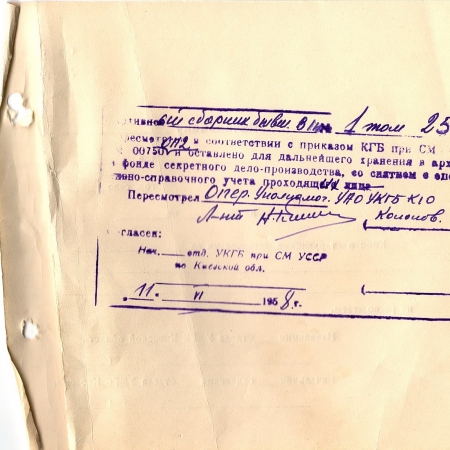 тивное ый сборник бывш. 1 том 25
ресмотр ОП2 в соответствии с приказом КГБ при СМ
00750 и оставлено для дальнейшего хранения в арх
фонде секретного дело-производства, со снятием с опе
но-справочного учета проходящих лица
Пересмотрел Опер. Уполумог. УАО УКГБ К/О
Л-нт Колосов.
гласен:
Нач. отд. УКГБ при СМ УССР
по Киевской обл.
11 VI 1958 г.